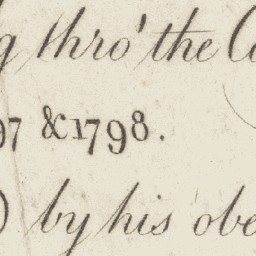 g thro' the Co
97 & 1798.
) by his obe